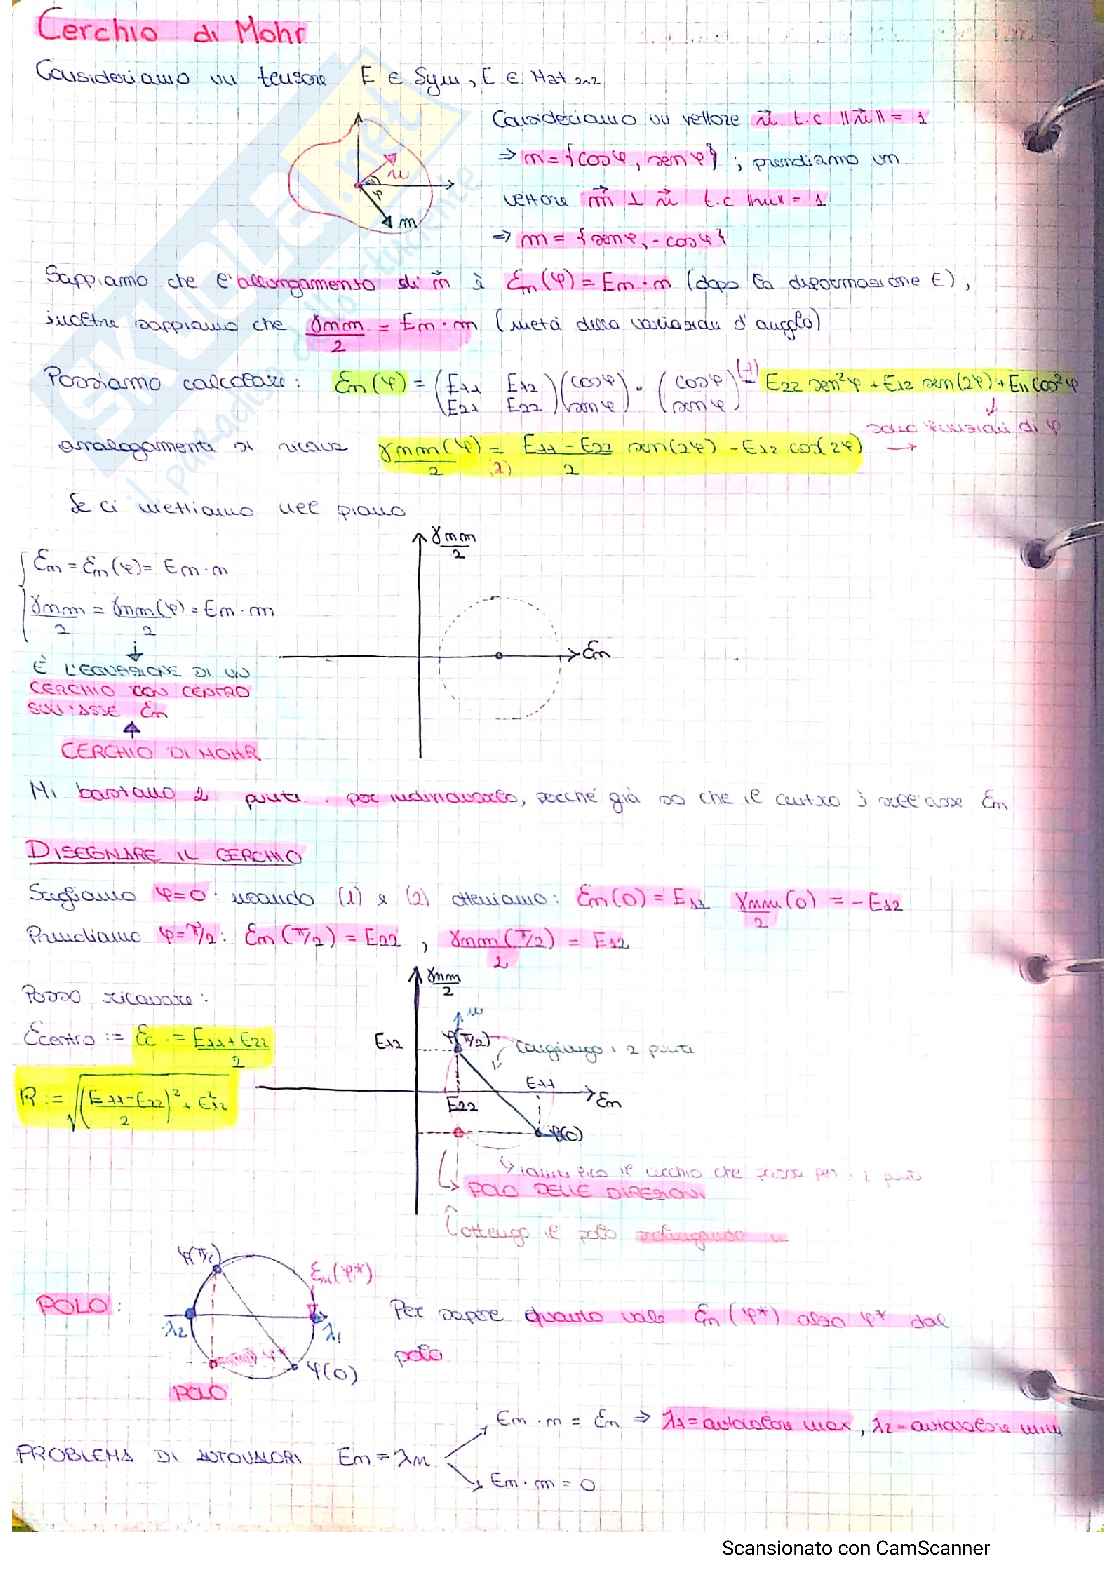 Cerchio di Mohr
Consideriamo un tensore E ∈ Sym, E ∈ Mat 2x2
Consideriamo un vettore n t.c ||n|| = 1
⇒ n = {cosφ, senφ} ; prendiamo un
vettore m ⊥ n t.c ||m|| = 1
⇒ m = {senφ, -cosφ}
n
φ
m
Sappiamo che l'allungamento di n è Ɛn(φ) = En·n (dopo la deformazione E),
inoltre sappiamo che γnm/2 = En·m (metà della variazione d'angolo)
Possiamo calcolare: Ɛn(φ) = (E11 E12 E21 E22)(cosφ senφ)·(cosφ senφ) (1)= E22 sen²φ + E12 sen(2φ) + E11 cos²φ
solo funzioni di φ
analogamente si ricava γnm(φ)/2 =(2) E11-E22/2 sen(2φ) - E12 cos(2φ) →
Se ci mettiamo nel piano
γnm/2
Ɛn = Ɛn(φ) = En·n
γnm/2 = γnm(φ)/2 = En·m
Ɛn
È L'EQUAZIONE DI UN
CERCHIO CON CENTRO
SULL'ASSE Ɛn
CERCHIO DI MOHR
Mi bastano 2 punti per individuarlo, perché già so che il centro è sull'asse Ɛn
DISEGNARE IL CERCHIO
Scegliamo φ=0 usando (1) e (2) otteniamo: Ɛn(0) = E11 γnm/2(0) = -E12
Prendiamo φ=π/2: Ɛn(π/2) = E22 , γnm(π/2)/2 = E12
γnm/2
Posso ricavare:
Ɛcentro := Ɛc = E11+E22/2
E12
φ(π/2)
congiungo i 2 punti
E11
R := √((E11-E22/2)² + E²12)
E22
Ɛn
φ(0)
il cerchio che passa per i 2 punti
POLO DELLE DIREZIONI
ottengo il polo
φ(π/2)
Ɛn(φ*)
POLO:
λ2
λ1
Per sapere quanto vale Ɛn(φ*) alzo φ* dal
polo
φ*
φ(0)
POLO
En·n = Ɛn ⇒ λ1=autovalore max, λ2=autovalore min
PROBLEMA DI AUTOVALORI En = λn
En·m = 0
Scansionato con CamScanner